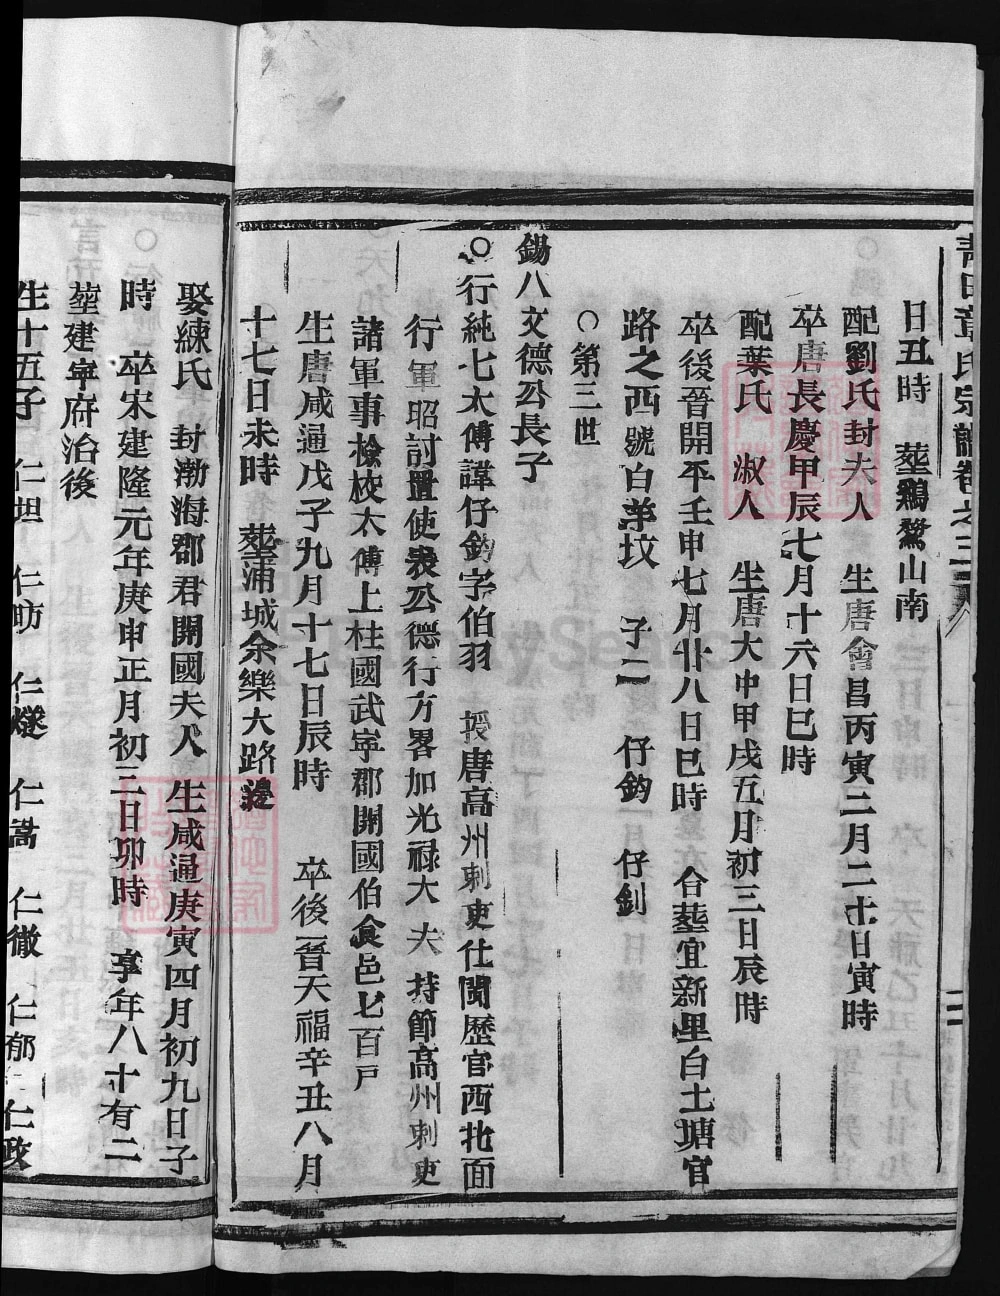 青田章氏宗譜卷之三
二
日丑時　塟鷄鶩山南
配劉氏封夫人　生唐會昌丙寅二月二十日寅時
卒唐長慶甲辰七月十六日巳時
配葉氏　淑人　生唐大中甲戌五月初三日辰時
卒後晉開平壬申七月廿八日巳時　合塟宜新里白土塘官
路之西號白羊坟　子二　仔鈞　仔釗
○第三世
錫八文德公長子
○行純七太傅諱仔鈞字伯羽　授唐高州刺吏仕閩歷官西北面
行軍昭討置使表公德行方畧加光禄大夫　持節高州刺吏
諸軍事檢校太傅上柱國武寧郡開國伯食邑七百戸
生唐咸通戊子九月十七日辰時　卒後晉天福辛丑八月
十七日未時　塟浦城余樂大路邊
娶練氏　封渤海郡君開國夫人　生咸通庚寅四月初九日子
時　卒宋建隆元年庚申正月初三日卯時　享年八十有二
塟建寧府治後
生十五子　仁坦　仁昉　仁燧　仁嵩　仁徹　仁郁　仁政